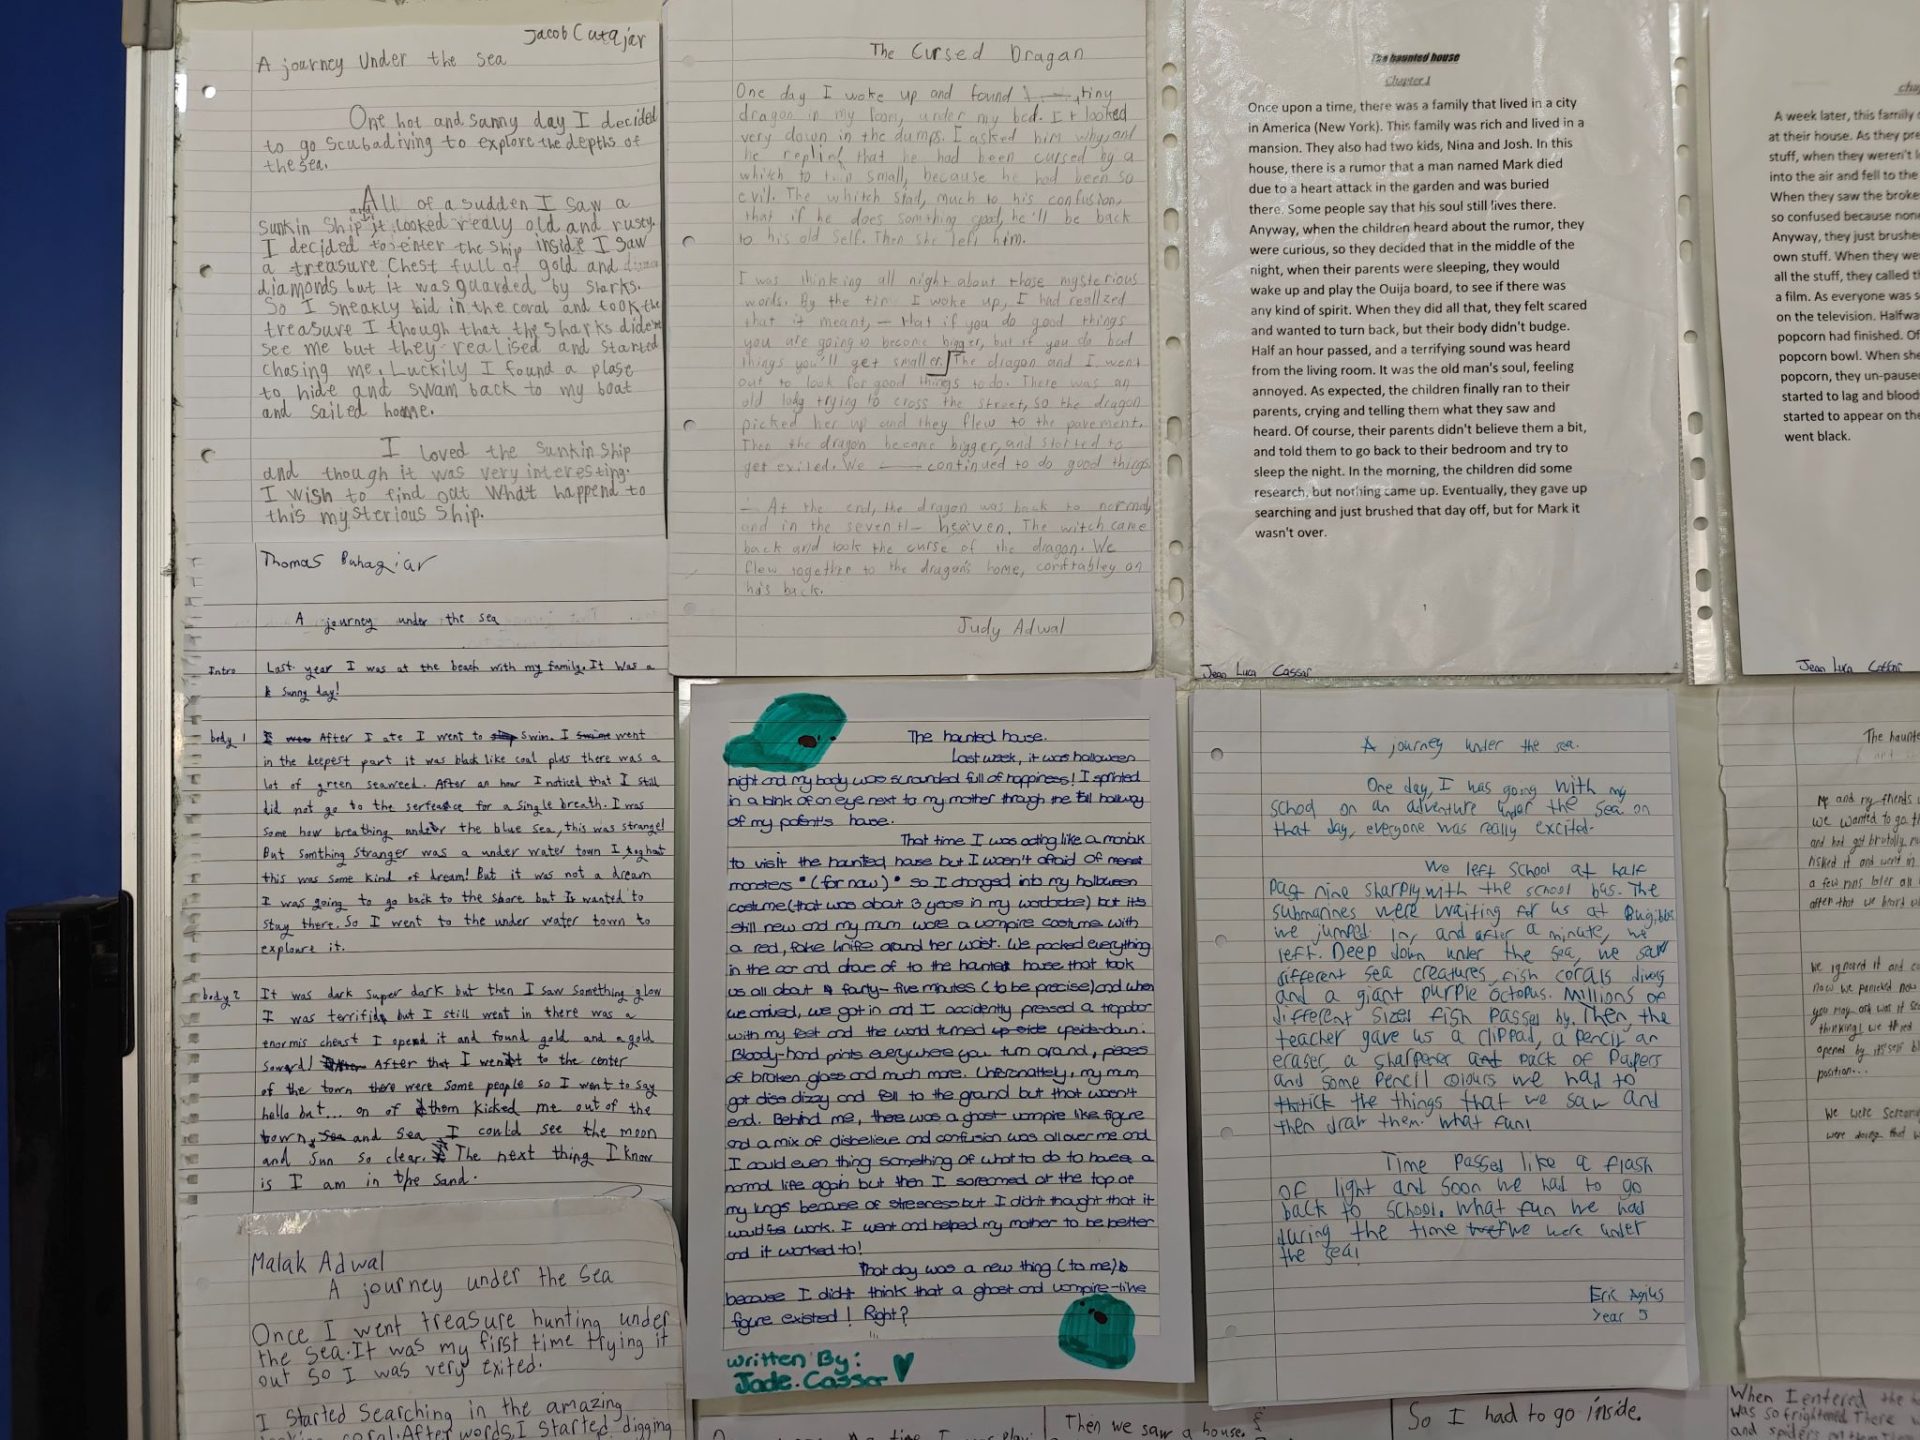 Jacob Cutajar
A journey Under the sea
One hot and sunny day I decided
to go scubadiving to explore the depths of
the sea.
All of a sudden I saw a
sunkin ship and it looked realy old and rusty.
I decided to enter the ship inside I saw
a treasure chest full of gold and
diamonds but it was guarded by sharks.
So I sneakly hid in the coral and took the
treasure I though that the sharks dident
see me but they realised and started
chasing me. Luckily I found a plase
to hide and swam back to my boat
and sailed home.
I loved the sunkin ship
and though it was very interesting.
I wish to find out what happend to
this mysterious ship.
Thomas Buhagiar
A journey under the sea
Intro Last year I was at the beach with my family. It was a
sunny day!
body 1 After I ate I went to swim. I went
in the deepest part it was black like coal plus there was a
lot of green seaweed. After an hour I noticed that I still
did not go to the serfeasce for a single breath. I was
some how breathing under the blue sea, this was strange!
But somthing stranger was a under water town I toghat
this was some kind of dream! But it was not a dream
I was going to go back to the shore but I wanted to
stay there. So I went to the under water town to
explource it.
body 2 It was dark super dark but then I saw something glow
I was terrifide but I still went in there was a
enormis cheast I opend it and found gold and a gold
soward! After that I went to the center
of the town there were some people so I went to say
hello but... on of them kicked me out of the
town, and sea I could see the moon
and sun so clear. The next thing I know
is I am in the sand.
Malak Adwal
A journey under the sea
Once I went treasure hunting under
the sea. It was my first time trying it
out so I was very exited.
I started searching in the amazing
coral. After words, I started digging
The Cursed Dragan
One day I woke up and found tiny
dragon in my room, under my bed. It looked
very down in the dumps. I asked him why, and
he replied that he had been cursed by a
whitch to turn small, because he had been so
evil. The whitch said, much to his confusion,
that if he does somthing good, he'll be back
to his old self. Then she left him.
I was thinking all night about those mysterious
words. By the time I woke up, I had reallzed
that it meant, that if you do good things
you are going to become bigger, but if you do bad
things you'll get smaller. The dragon and I went
out to look for good things to do. There was an
old lady trying to cross the street, so the dragon
picked her up and they flew to the pavement.
Then the dragon became bigger, and started to
get exited. We continued to do good things.
At the end, the dragon was back to normal,
and in the seventh heaven. The witch came
back and took the curse of the dragon. We
flew together to the dragon's home, confrtabley on
his back.
Judy Adwal
The haunted house.
Last week, it was halloween
night and my body was surounded full of happiness! I sprinted
in a blink of an eye next to my mother through the tall hallway
of my parent's house.
That time I was acting like a maniak
to visit the haunted house but I wasn't afraid of
monsters *(for now)* so I changed into my halloween
costume (that was about 3 years in my wardrobe) but it's
still new and my mum wore a vampire costume with
a red, fake knife around her waist. We packed everything
in the car and drove of to the haunted house that took
us all about fourty-five minutes (to be precise) and when
we arrived, we got in and I accidently pressed a trapdoor
with my feet and the world turned up side upside down.
Bloody-hand prints everywhere you turn around, peices
of broken glass and much more. Unfortnatley, my mum
got dizzy and fell to the ground but that wasn't
end. Behind me, there was a ghost vampire like figure
and a mix of disbelieve and confusion was all over me and
I could even thing something of what to do to have a
normal life again but then I screamed at the top of
my lungs because of streness but I didn't thought that it
would work. I went and helped my mother to be better
and it worked to!
That day was a new thing (to me)
because I didn't think that a ghost and vampire-like
figure existed! Right?
written By:
Jade. Cassar
The haunted house
Chapter 1
Once upon a time, there was a family that lived in a city
in America (New York). This family was rich and lived in a
mansion. They also had two kids, Nina and Josh. In this
house, there is a rumor that a man named Mark died
due to a heart attack in the garden and was buried
there. Some people say that his soul still lives there.
Anyway, when the children heard about the rumor, they
were curious, so they decided that in the middle of the
night, when their parents were sleeping, they would
wake up and play the Ouija board, to see if there was
any kind of spirit. When they did all that, they felt scared
and wanted to turn back, but their body didn't budge.
Half an hour passed, and a terrifying sound was heard
from the living room. It was the old man's soul, feeling
annoyed. As expected, the children finally ran to their
parents, crying and telling them what they saw and
heard. Of course, their parents didn't believe them a bit,
and told them to go back to their bedroom and try to
sleep the night. In the morning, the children did some
research, but nothing came up. Eventually, they gave up
searching and just brushed that day off, but for Mark it
wasn't over.
1
Jean Luca Cassar
A journey under the sea.
One day, I was going with my
school on an adventure under the sea on
that day, everyone was really excited.
We left school at half
past nine sharply with the school bus. The
submarines were waiting for us at Bugibba
we jumped in, and after a minute, we
left. Deep down under the sea, we saw
different sea creatures, fish corals divers
and a giant purple octopus. Millions of
different sizes fish passes by. Then the
teacher gave us a clippad, a pencil an
eraser, a sharpener and pack of papers
and some pencil colours we had to
tick the things that we saw and
then draw them. What fun!
Time passed like a flash
of light and soon we had to go
back to school. What fun we had
during the time we were under
the sea!
Eric Agius
Year 5
A week later, this family
at their house. As they pre
stuff, when they weren't l
into the air and fell to the
When they saw the broke
so confused because none
Anyway, they just brushe
own stuff. When they we
all the stuff, they called t
a film. As everyone was s
on the television. Halfwa
popcorn had finished. Of
popcorn bowl. When she
popcorn, they un-pause
started to lag and blood
started to appear on the
went black.
Jean Luca Cassar
The haunte
Me and my friends
we wanted to go th
and had got brutally
Asked it and went in
a few mins later
after that we heard
we ignord it and
now we panicked now
you may ask was it
thinking! we tried
opened by itself
position...
We were screami
were doing that
Then we saw a house.
So I had to go inside.
When I entered the
was so frightened There
and spiders